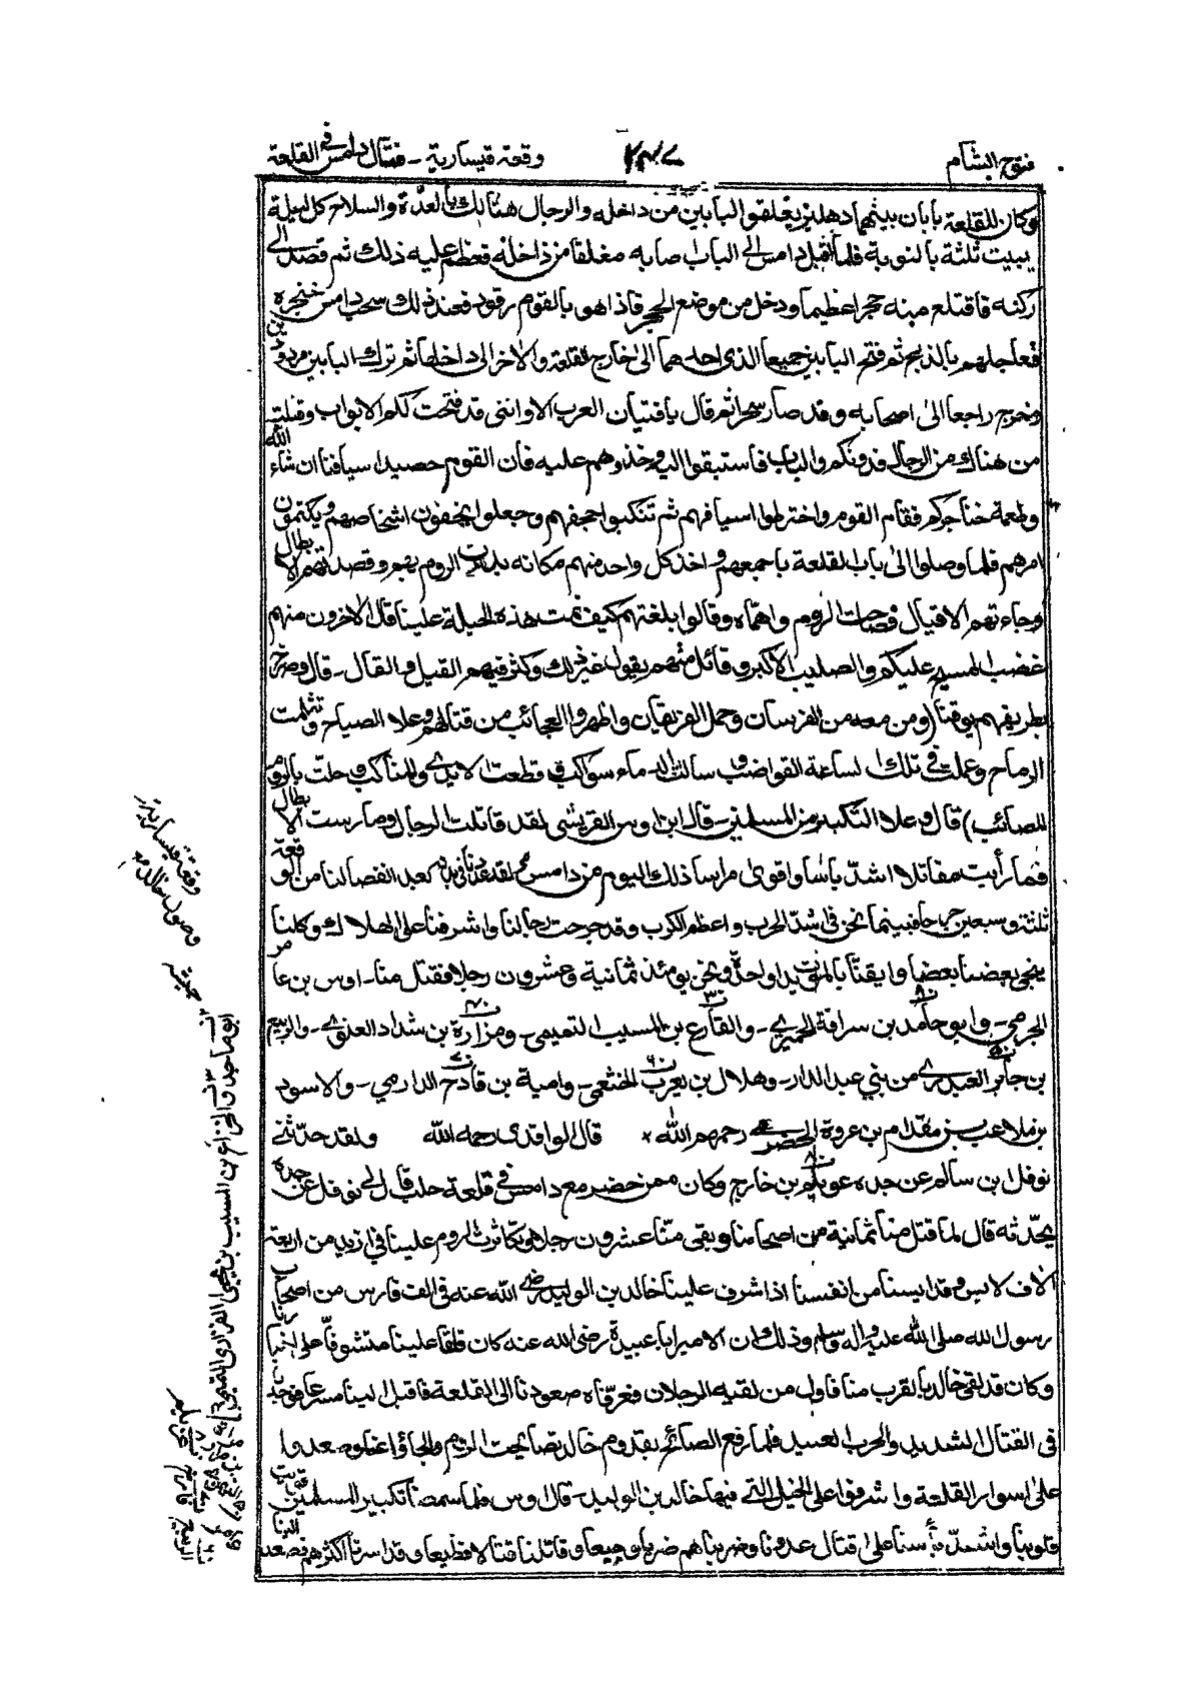 فتوح الشام ٢٤٧ وقعة قيسارية - قتال دامس في القلعة
وكان للقلعة بابان بينهما دهليز يغلقوا البابين من داخله والرجال هنالك بالعدّة والسلاح كل ليلة
يبيت ثلثة بالنوبة فلما اقبل دامس الى الباب صابه مغلقا من داخله فعظم عليه ذلك ثم قصد الى
ركنه فاقتلع منه حجرا عظيما ودخل من موضع الحجر فاذا هو بالقوم رقود فعند ذلك سحب دامس خنجره
فعاجلهم بالذبح ثم فتح البابين جميعا الذى احدهما الى خارج القلعة والاخر الى داخلها ثم ترك البابين مردودين
وخرج راجعا الى اصحابه وقد صار سحرا ثم قال يا فتيان العرب الا وانني قد فتحت لكم الابواب وقتلت
من هناك من الرجال فدونكم والباب فاستبقوا اليه وخذوهم عليه فان القوم حصيد اسيافنا ان شاء الله
وطعمة خناجركم فقام القوم واخترطوا اسيافهم ثم تنكبوا حجفهم وجعلوا يخفون اشخاصهم ويكتمون
امرهم فلما وصلوا الى باب القلعة باجمعهم واخذ كل واحد منهم مكانه بدرت الروم بهم وقصدتهم الابطال
وجاءتهم الاقيال فصاحت الروم واهمّاه وقالوا بلغتهم كيف تمت هذه الحيلة علينا قال الاخرون منهم
غضب المسيح عليكم والصليب الاكبر وقائل منهم يقول غير ذلك وكثر فيهم القيل والقال - قال وصرخ
بطريقهم يوقنا (ومن معه من الفرسان وحمل الفريقان واظهروا العجائب من قتالهم وعلا الصياح وتثلمت
الرماح وعملت في تلك الساعة القواضب وسالت الدماء سواكب وقطعت الايدي والمناكب وحلت بالروم
المصائب) قال وعلا التكبير من المسلمين - قال ابن اوس القريشي لقد قاتلت الرجال ومارست الابطال
فما رأيت مقاتلا اشدّ باسا واقوى مراسا ذلك اليوم من دامس لقد عددنا في بدنه بعد انفصالنا من الوقعة
ثلثة وسبعين جرحا فبينما نحن في اشدّ الحرب واعظم الكرب وقد جرحت رجالنا واشرفنا على الهلاك وكلنا
ينجي بعضنا بعضا وايقنا بالموت يدا واحدة ونحن يومئذ ثمانية وعشرون رجلا فقتل منا - اوس بن عامر
الجرمي - وابو حامد بن سراقة الحميري - والقارع بن المسيب التميمي - ومزارة بن شداد العنزي - والربيع
بن جابر العبدري من بني عبد الدار - وهلال بن يعرب الخثعمي - وامية بن قادح الدارمي - والاسود
بن ملاعب بن مقدام بن عروة الحضرمي رحمهم الله * قال الواقدى رحمه الله ولقد حدثني
نوفل بن سالم عن جده عويلم بن خارج وكان ممن حضر مع دامس في قلعة حلب قال لي نوفل عن جده
يحدثه قال لما قتل منا ثمانية من اصحابنا وبقى منّا عشرون رجلا وتكاثرت الروم علينا في ازيد من اربعة
الاف لابس وقد ايسنا من انفسنا اذا شرف علينا خالد بن الوليد رضي الله عنه في الف فارس من اصحاب
رسول الله صلى الله عليه واله وسلم وذلك ان الامير ابا عبيدة رضى الله عنه كان قلقا علينا متشوفا على اخبارنا
وكان قد لقى خالد بالقرب منا فاول من لقيه الرجلان فعرّفاه صعودنا الى القلعة فاقبل الينا مسرعا فوجدنا
فى القتال الشديد والحرب العتيد فلما رفع الصائح بقدوم خالد تصايحت الروم والجاؤا عنا وصعدوا
على اسوار القلعة واشرفوا على الخيل التي فيها خالد بن الوليد - قال اوس فلما سمعنا تكبير المسلمين قويت
قلوبنا واشتدّ بأسنا على قتال عدونا وضربناهم ضربا وجيعا وقاتلنا قتالا فظيعا وقد اسرنا اكثرهم فصعد الينا
وقعة قيسارية
وصول خالد
ابو ماجد والخزاع بن المسيب بن يحيى الفزاري